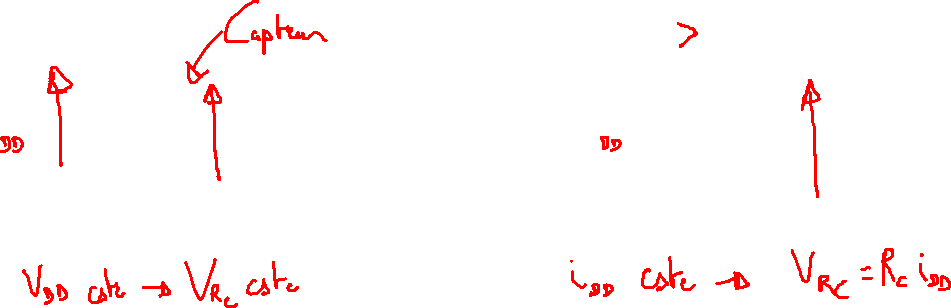 Capteur
>
DD
DD
V_DD cste → V_Rc cste
i_DD cste → V_Rc = R_c i_DD